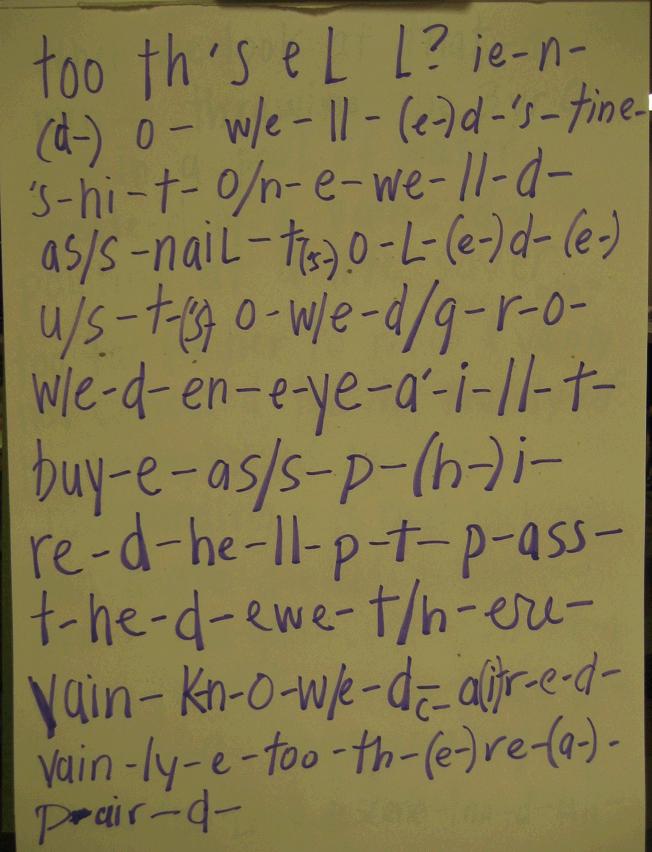 too th's e L L? ie-n-
(d-) o- w/e-ll-(e-)d-'s-tine-
's-hi-t- o/n-e-we-ll-d-
as/s-naiL-t('s-) o-L-(e-)d-(e-)
u/s-t-('s) o-w/e-d/g-r-o-
w/e-d-en-e-ye-a'-i-ll-t-
buy-e-as/s-p-(h-)i-
re-d-he-ll-p-t-p-ass-
t-he-d-ewe-t/h-ere-
vain-Kn-o-w/e-d-c-a(i)r-e-d-
vain-ly-e-too-th-(e-)re-(a-)-
p-air-d-